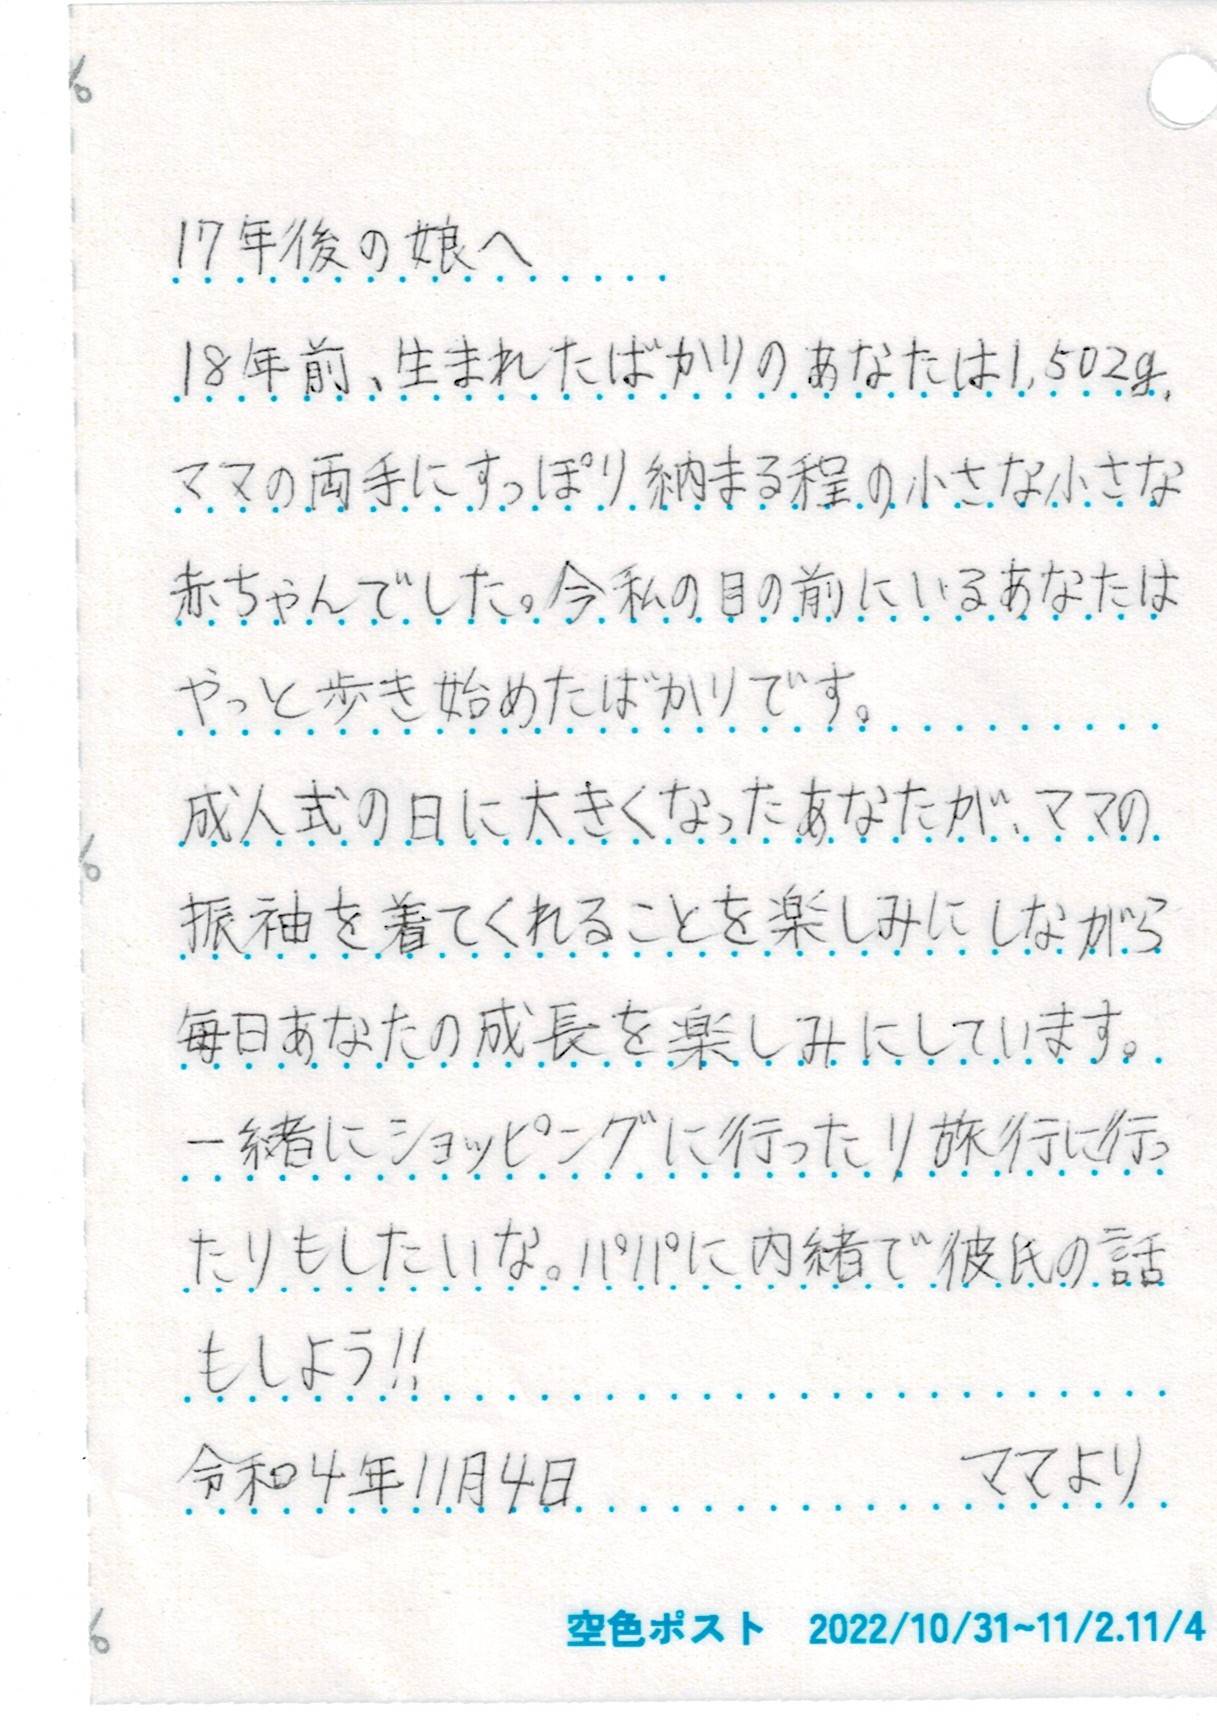 17年後の娘へ
18年前、生まれたばかりのあなたは1,502g、
ママの両手にすっぽり納まる程の小さな小さな
赤ちゃんでした。今私の目の前にいるあなたは
やっと歩き始めたばかりです。
成人式の日に大きくなったあなたが、ママの
振袖を着てくれることを楽しみにしながら
毎日あなたの成長を楽しみにしています。
一緒にショッピングに行ったり旅行に行っ
たりもしたいな。パパに内緒で彼氏の話
もしよう!!
令和4年11月4日 ママより
空色ポスト 2022/10/31~11/2.11/4